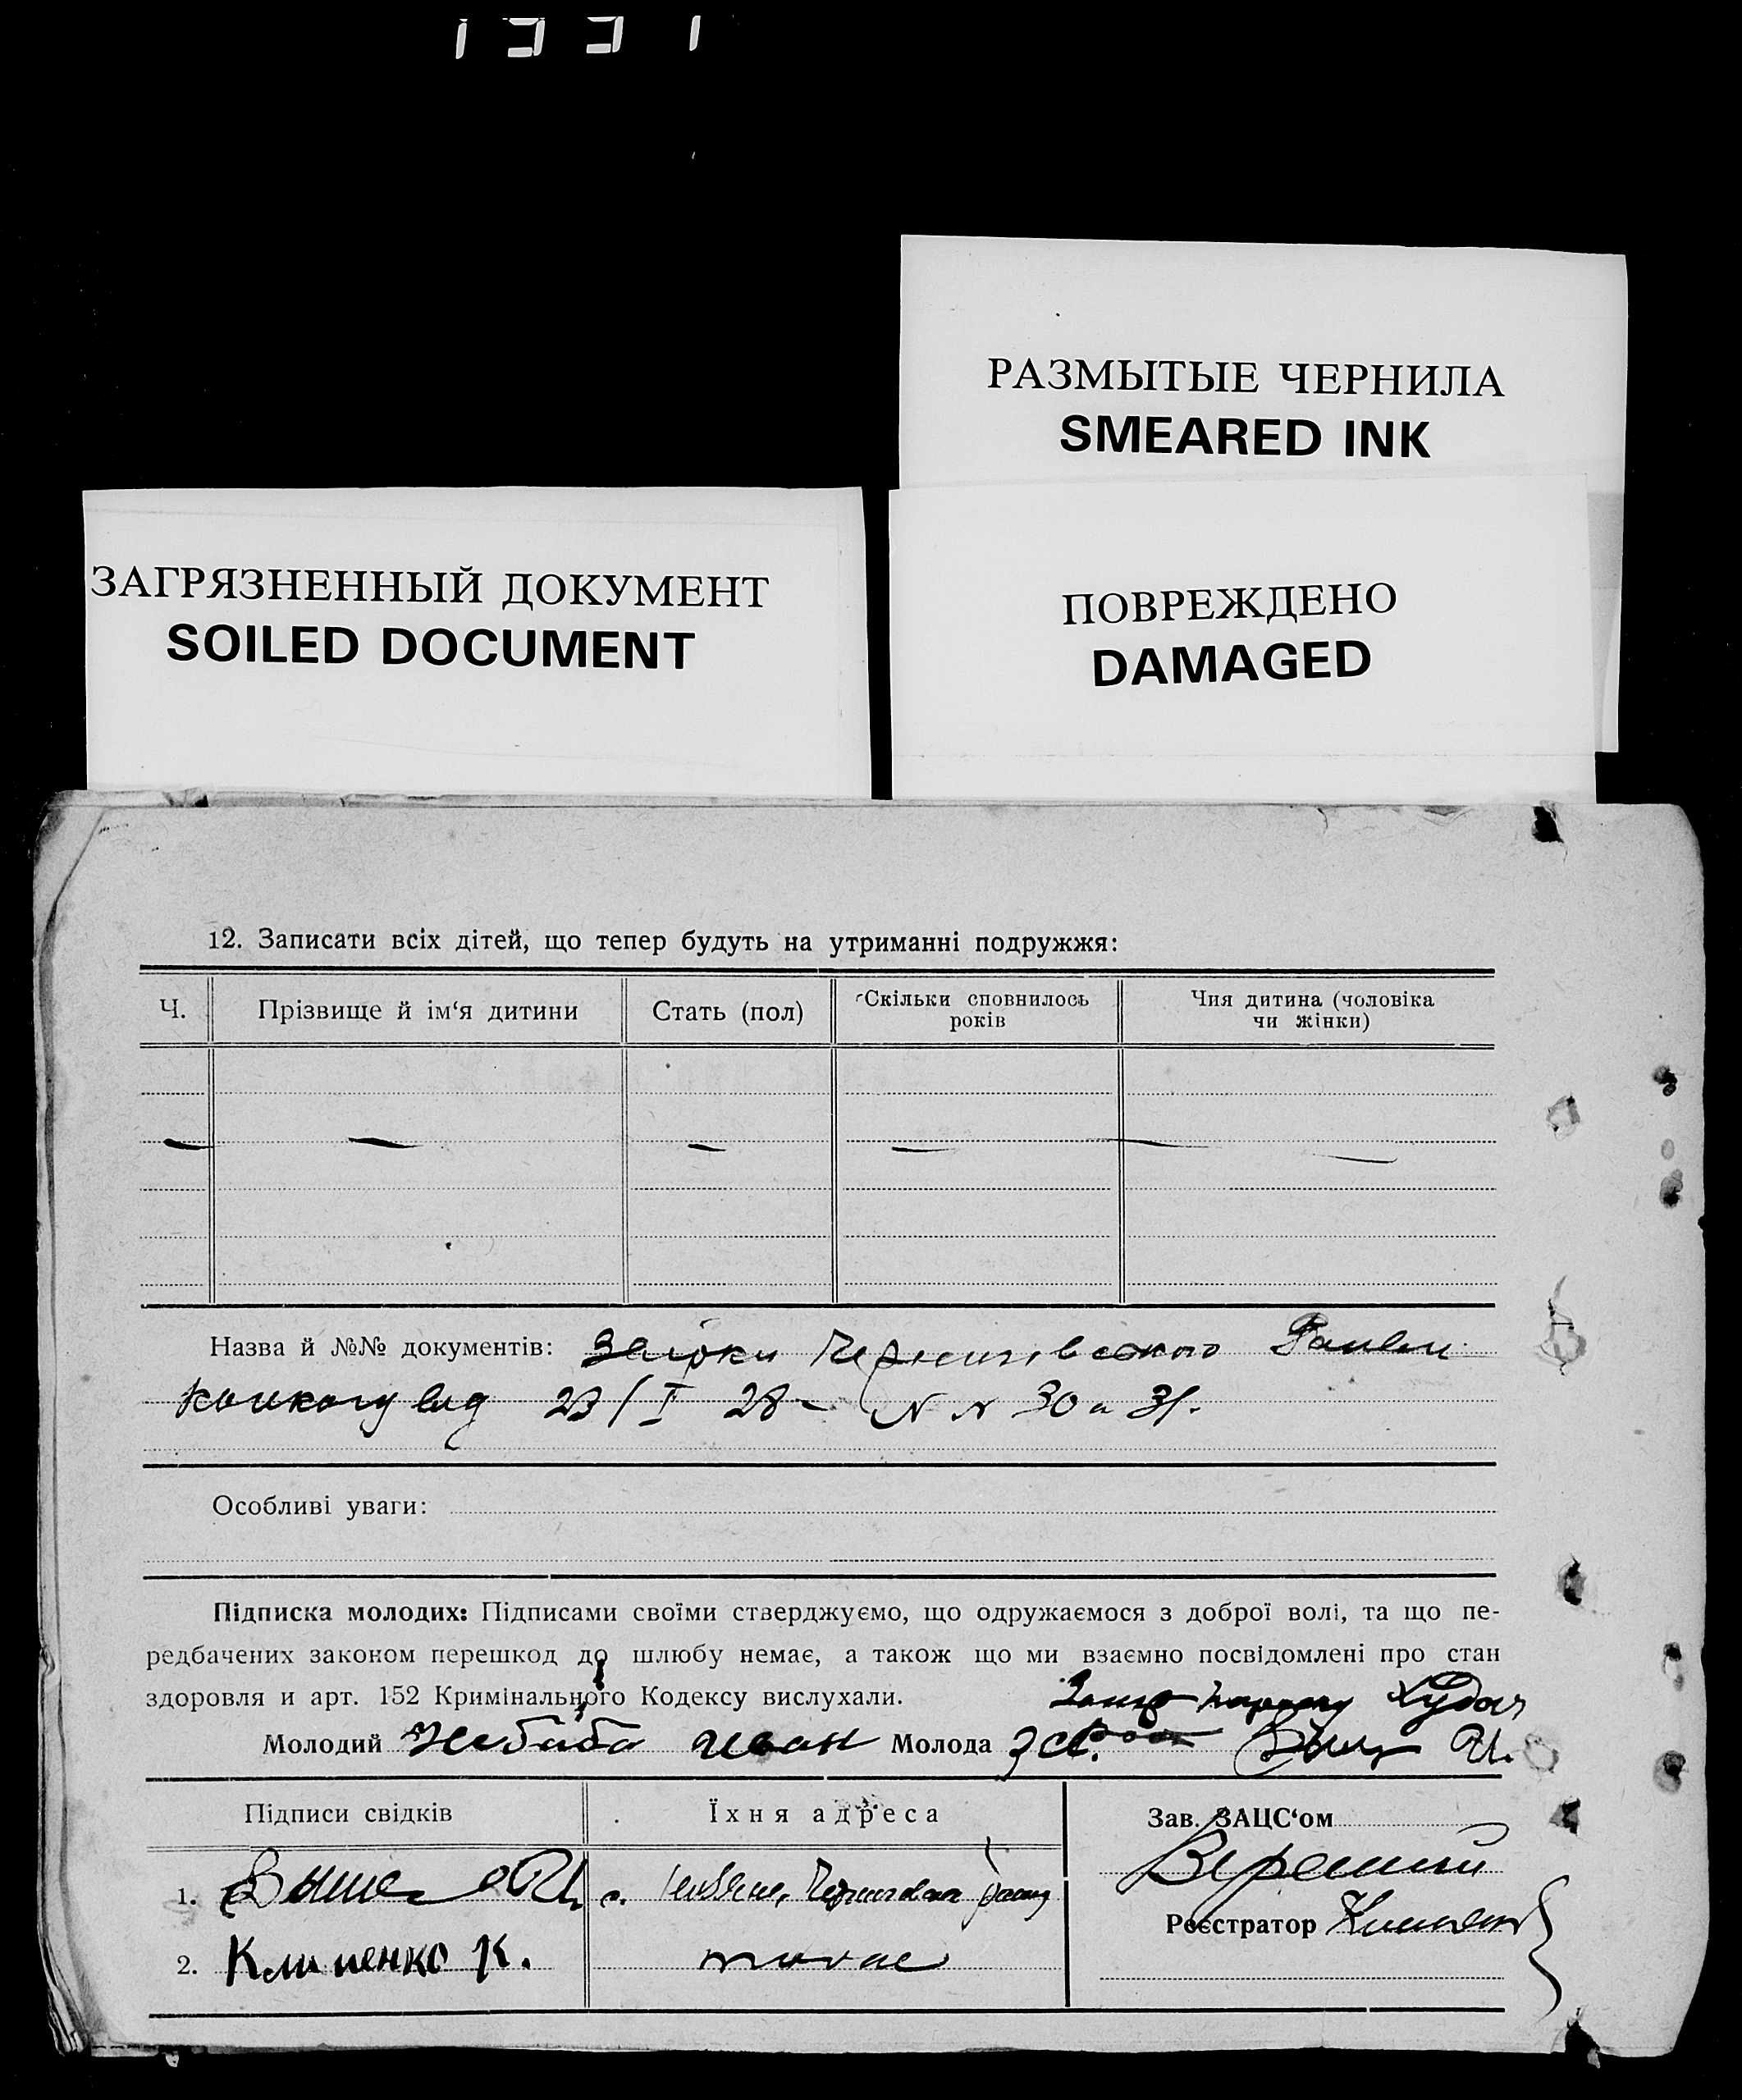 1991
РАЗМЫТЫЕ ЧЕРНИЛА
SMEARED INK
ЗАГРЯЗНЕННЫЙ ДОКУМЕНТ
SOILED DOCUMENT
ПОВРЕЖДЕНО
DAMAGED
12. Записати всіх дітей, що тепер будуть на утриманні подружжя:
Ч. Прізвище й ім‘я дитини Стать (пол) Скільки сповнилось років Чия дитина (чоловіка чи жінки)
Назва й №№ документів:
від 23/I 28 N N 30 и 31.
Особливі уваги:
Підписка молодих: Підписами своїми стверджуємо, що одружаємося з доброї волі, та що пе-
редбачених законом перешкод до шлюбу немає, а також що ми взаємно посвідомлені про стан
здоровля и арт. 152 Кримінального Кодексу вислухали.
Молодий Жебаба Иван Молода
Підписи свідків Їхня адреса Зав. ЗАЦС‘ом
1.
Реєстратор
2. Клименко К.